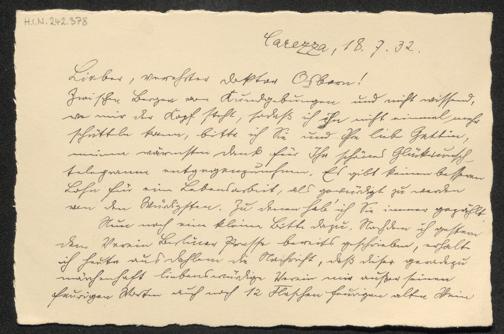 H.I.N. 242.378
Carezza, 18. 7. 32.
Lieber, verehrter Doktor Osborn!
Zwischen Bergen von Kundgebungen und nicht wissend,
wo mir der Kopf steht, sodaß ich ihn nicht einmal mehr
schütteln kann, bitte ich Sie und Ihre liebe Gattin,
meinen wärmsten Dank für Ihr schönes Glückwunsch-
telegramm entgegenzunehmen. Es gibt keinen besseren
Lohn für eine Lebensarbeit, als gewürdigt zu werden
von den Würdigsten. Zu denen hab ich Sie immer gezählt.
Nun noch eine kleine Bitte dazu. Nachdem ich gestern
dem Verein Berliner Presse bereits geschrieben, erhalte
ich heute aus Dahlem die Nachricht, daß dieser geradezu
märchenhaft liebenswürdige Verein mir außer seinen
feurigen Worten auch noch 12 Flaschen feurigen alten Wein